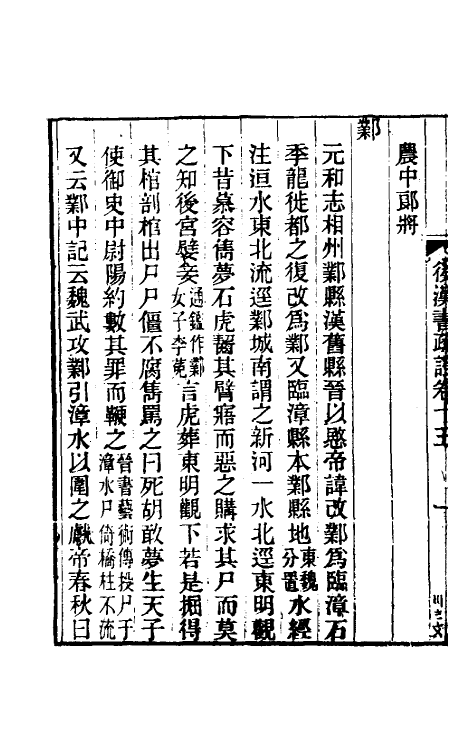 後漢書疏證卷十五
農中郎將
鄴
元和志相州鄴縣漢舊縣晉以愍帝諱改鄴爲臨漳石
季龍徙都之復改爲鄴又臨漳縣本鄴縣地東魏分置水經
注洹水東北流逕鄴城南謂之新河一水北逕東明觀
下昔慕容雋夢石虎齧其臂寤而惡之購求其尸而莫
之知後宮嬖妾通鑑作鄴女子李菟言虎葬東明觀下若是掘得
其棺剖棺出尸尸僵不腐雋罵之曰死胡敢夢生天子
使御史中尉陽約數其罪而鞭之晉書藝術傳投尸于漳水尸倚橋柱不流
又云鄴中記云魏武攻鄴引漳水以圍之獻帝春秋曰